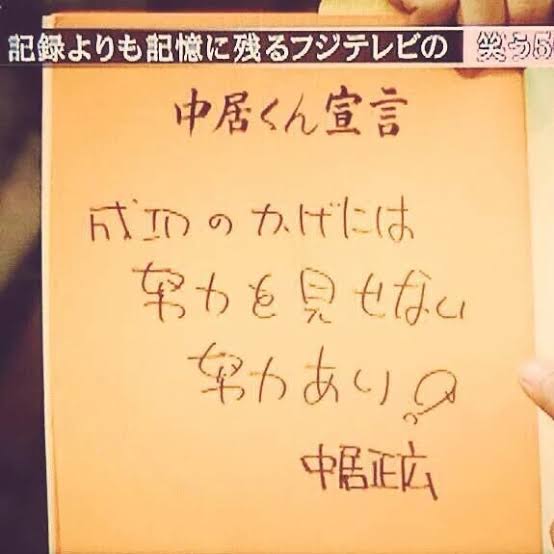 記録よりも記憶に残るフジテレビの 笑う5
中居くん宣言
成功のかげには
努力を見せない
努力あり?
中居正広